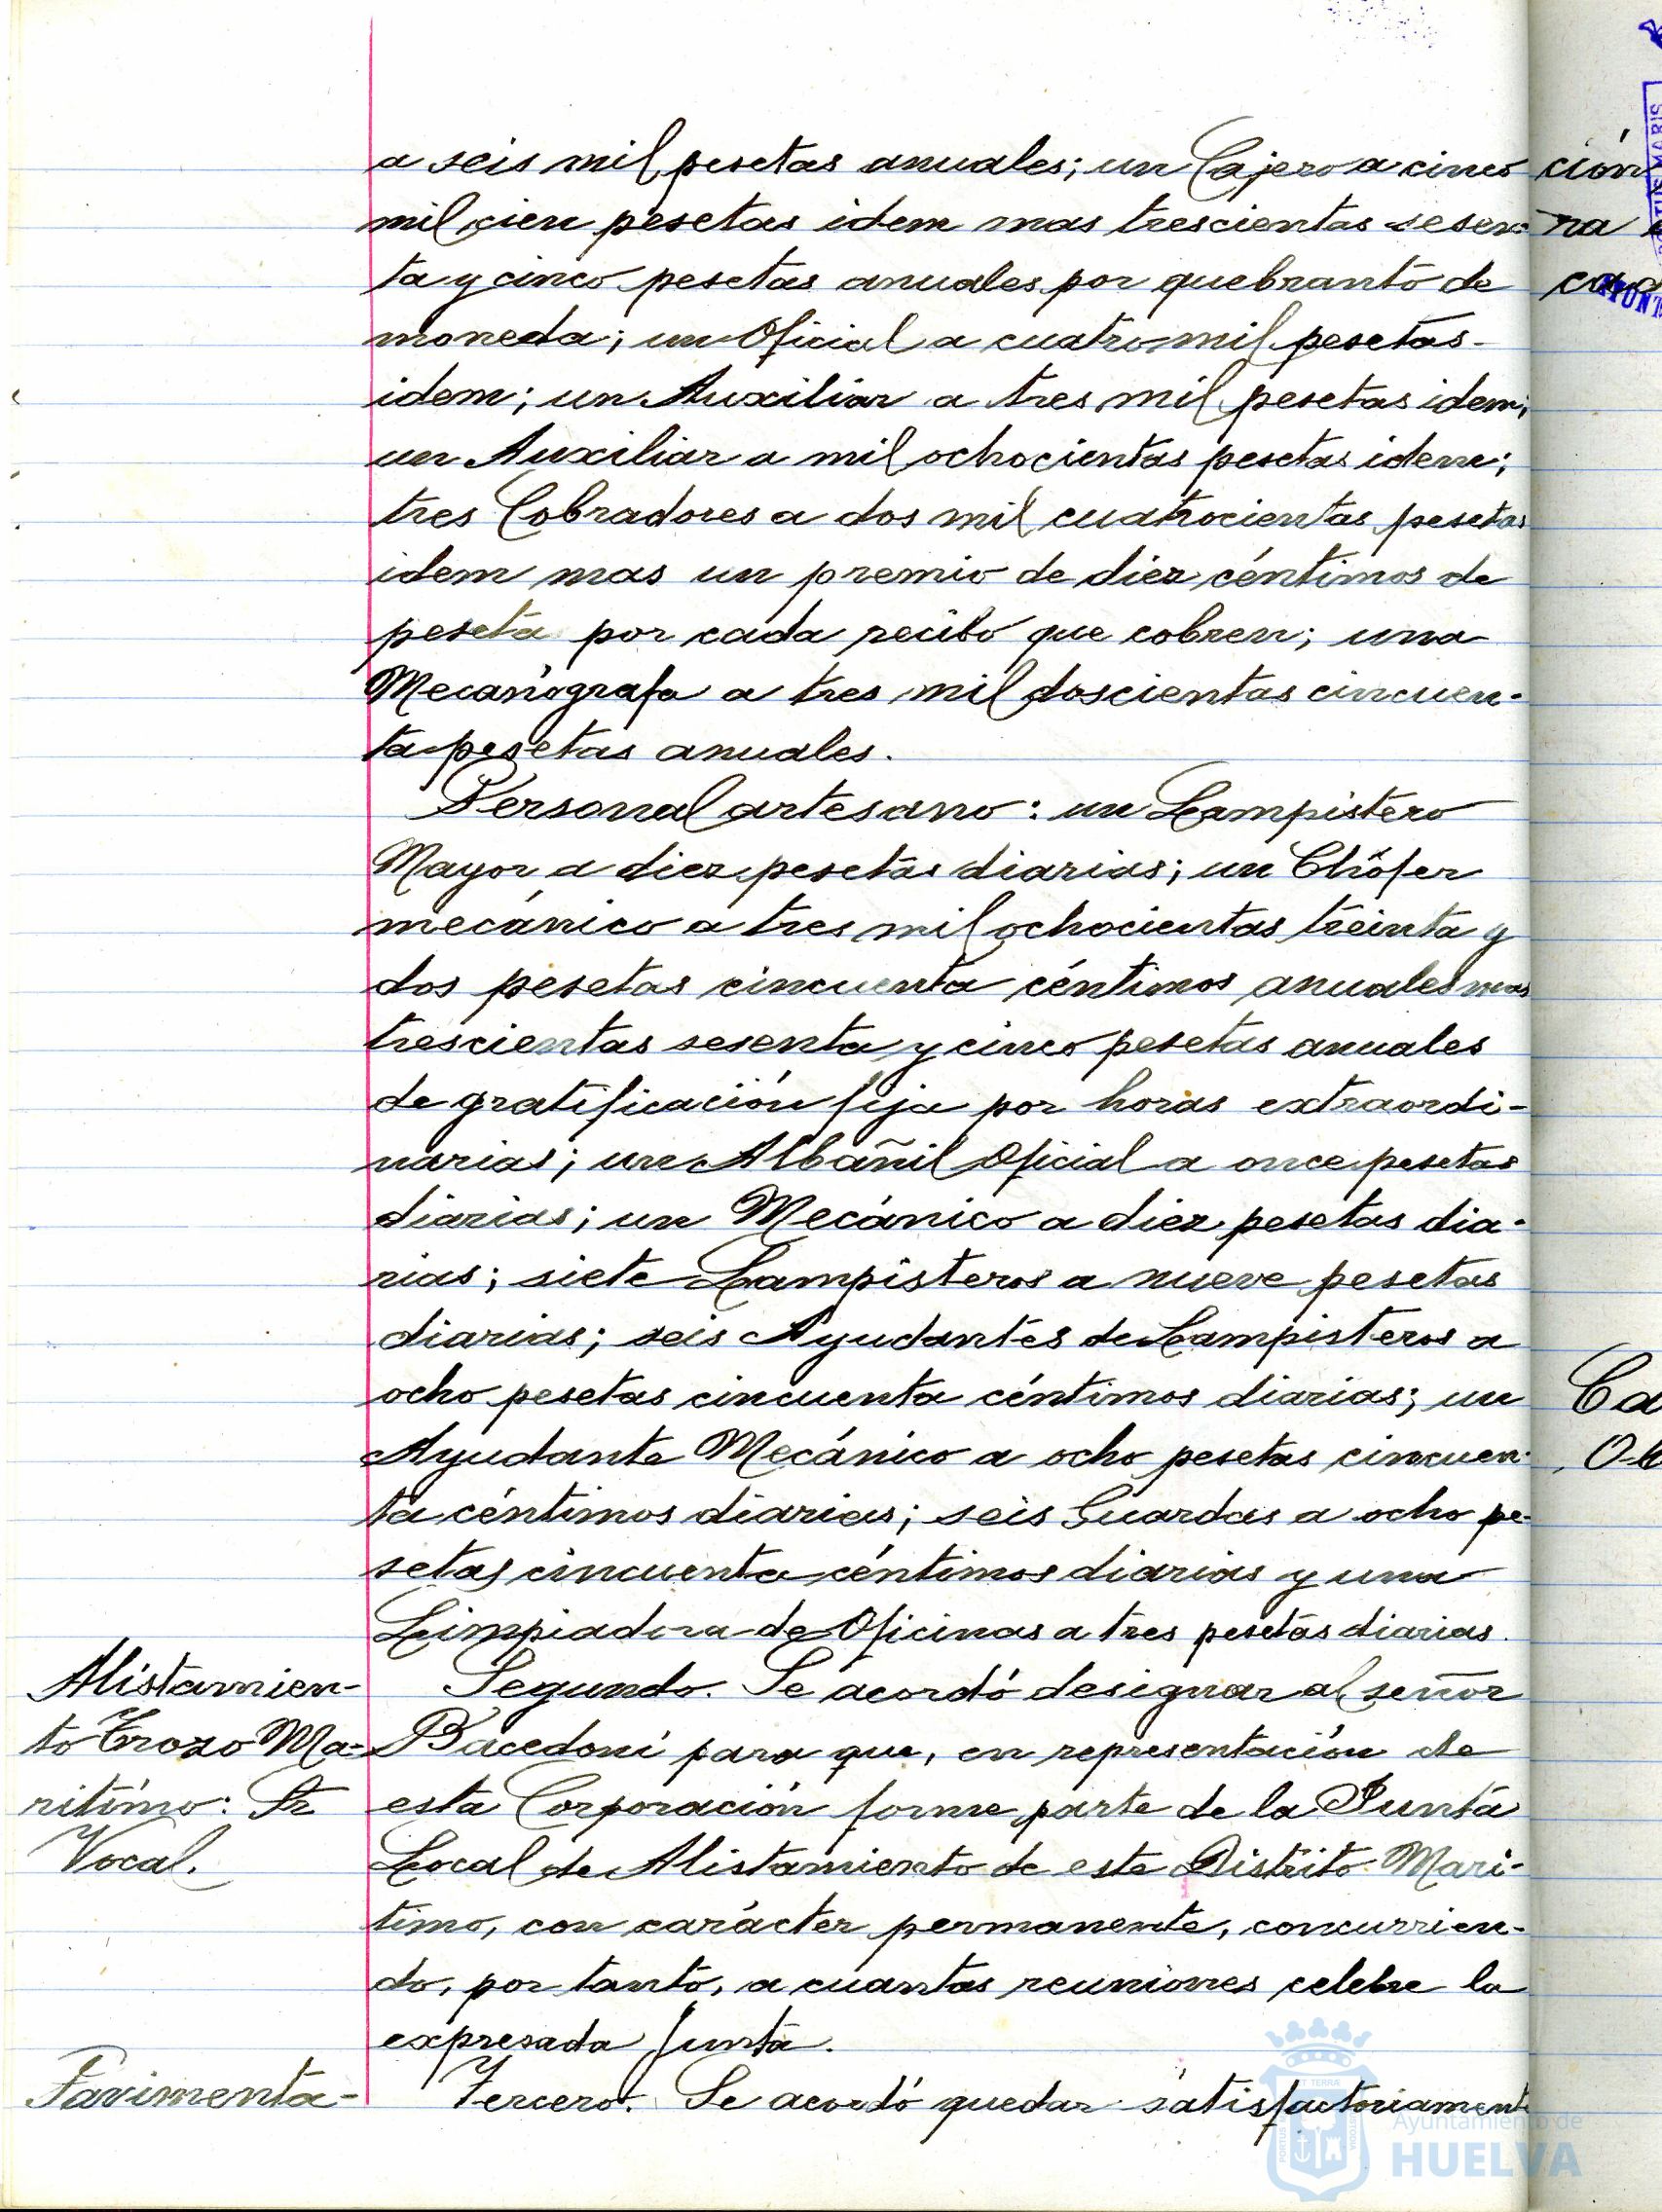 a seis mil pesetas anuales; un Cajero a cinco
mil cien pesetas idem mas trescientas sesen-
ta y cinco pesetas anuales por quebranto de
moneda; un Oficial a cuatro mil pesetas
idem; un Auxiliar a tres mil pesetas idem;
un Auxiliar a mil ochocientas pesetas idem;
tres Cobradores a dos mil cuatrocientas pesetas
idem mas un premio de diez céntimos de
peseta por cada recibo que cobren; una
Mecanógrafa a tres mil doscientas cincuen-
ta pesetas anuales.
Personal artesano: un Lampistero
Mayor a diez pesetas diarias; un Chófer
mecánico a tres mil ochocientas treinta y
dos pesetas cincuenta céntimos anuales mas
trescientas sesenta y cinco pesetas anuales
de gratificación fija por horas extraordi-
narias; un Albañil Oficial a once pesetas
diarias; un Mecánico a diez pesetas dia-
rias; siete Lampisteros a nueve pesetas
diarias; seis Ayudantes de Lampisteros a
ocho pesetas cincuenta céntimos diarias; un
Ayudante Mecánico a ocho pesetas cincuen-
ta céntimos diarias; seis Guardas a ocho pe-
setas cincuenta céntimos diarias y una
Limpiadora de Oficinas a tres pesetas diarias.
Alistamien-
to Trozo Ma-
rítimo: Sr.
Vocal.
Segundo. Se acordó designar al señor
Bacedoni para que, en representación de
esta Corporación forme parte de la Junta
Local de Alistamiento de este Distrito Marí-
timo, con carácter permanente, concurrien-
do, por tanto, a cuantas reuniones celebre la
expresada Junta.
Pavimenta-
Tercero. Se acordó quedar satisfactoriamente
Ayuntamiento de
HUELVA
ción
na
Ca